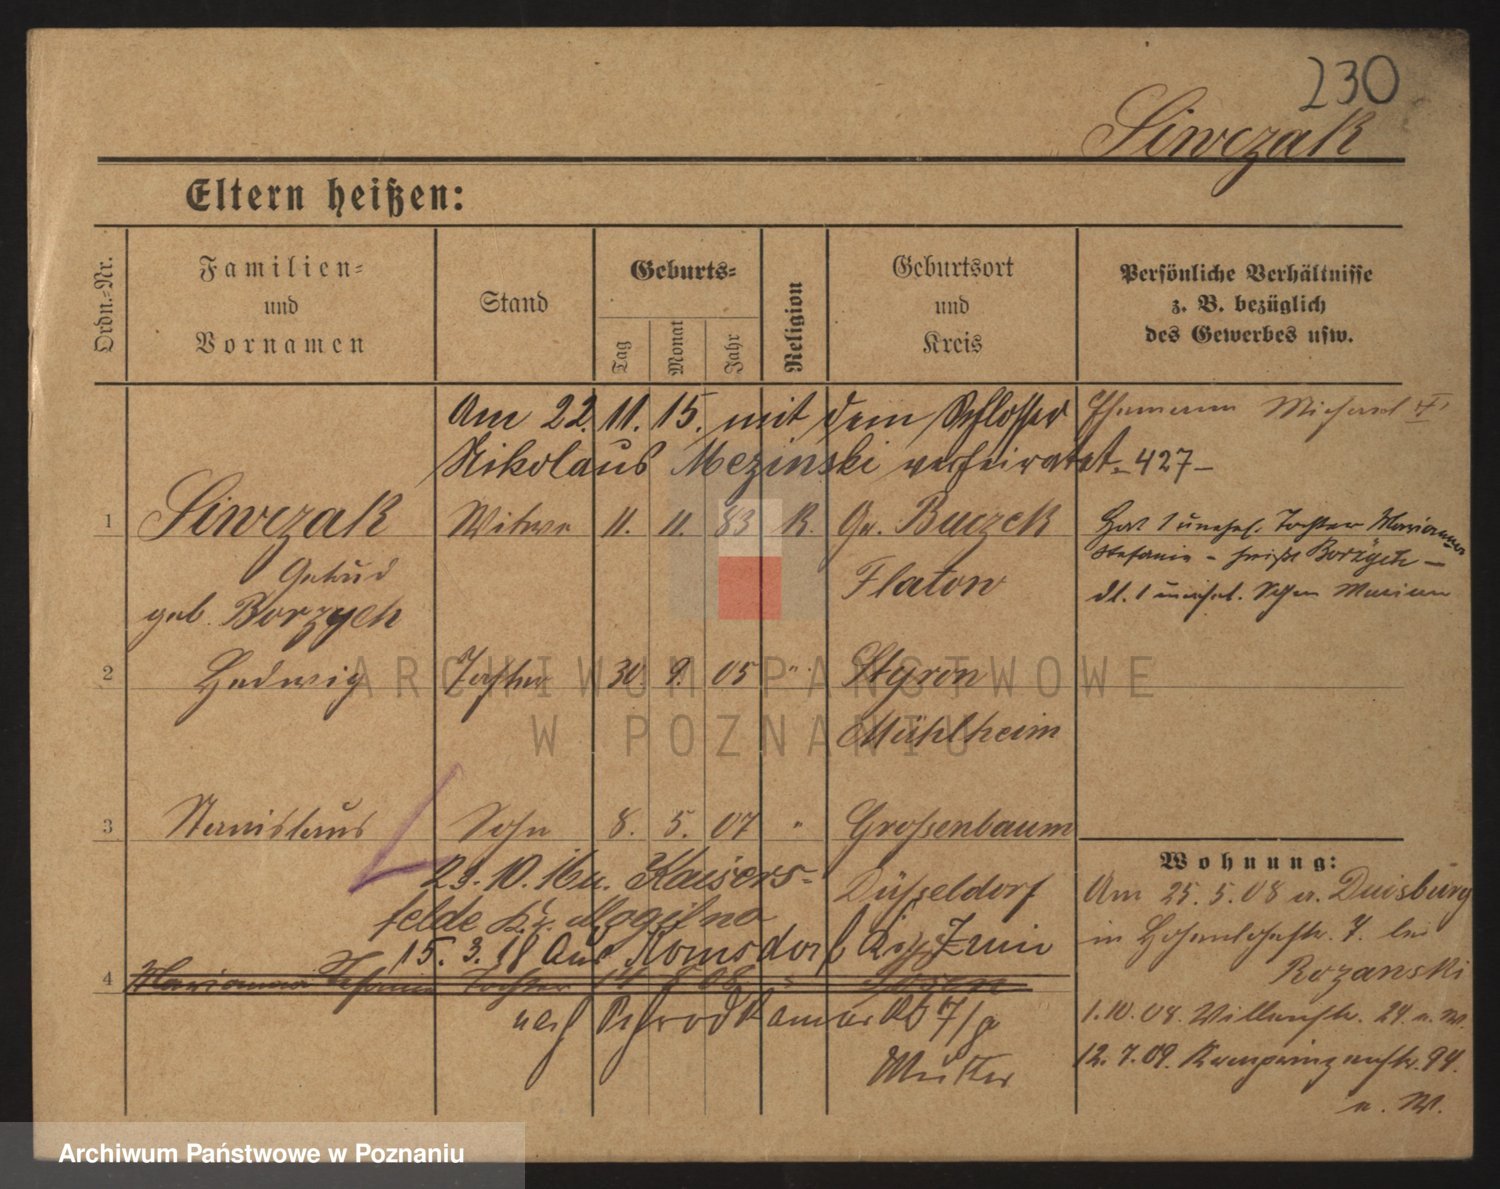 230
Siwczak
Eltern heißen:
Ordn.-Nr.
Familien-
und
Vornamen
Stand
Geburts-
Tag
Monat
Jahr
Religion
Geburtsort
und
Kreis
Persönliche Verhältnisse
z. B. bezüglich
des Gewerbes usw.
Am 22. 11. 15. mit dem Schlosser
Nikolaus Mezinski verheiratet - 427 -
Ehemann
1 Siwczak Witwe 11. 11. 83 K. Gr. Buczek
geb. Borzych Flatow
Hat 1 unehel. Tochter Marianna
Stefania - heißt Borzych -
dl. 1 unehel. Sohn Marian
2 Hedwig Tochter 30. 9. 05 " Styron
Mühlheim
3 Stanislaus Sohn 8. 5. 07 " Grossenbaum
Düsseldorf
23. 10. 16 n. Kaisers-
felde Kr. Mogilno
15. 3. 18 Aus Romsdorf Kr. Znin
4 Marianna Stefania Tochter 08 " Posen
nach
Mutter
Wohnung:
Am 25. 5. 08 a. Duisburg
in Hohenlohestr. 7. bei
Rozanski
1. 10. 08. 24. u. W.
12. 7. 09. Kronprinzenstr. 94.
u. W.
ARCHIWUM PAŃSTWOWE
W POZNANIU
Archiwum Państwowe w Poznaniu